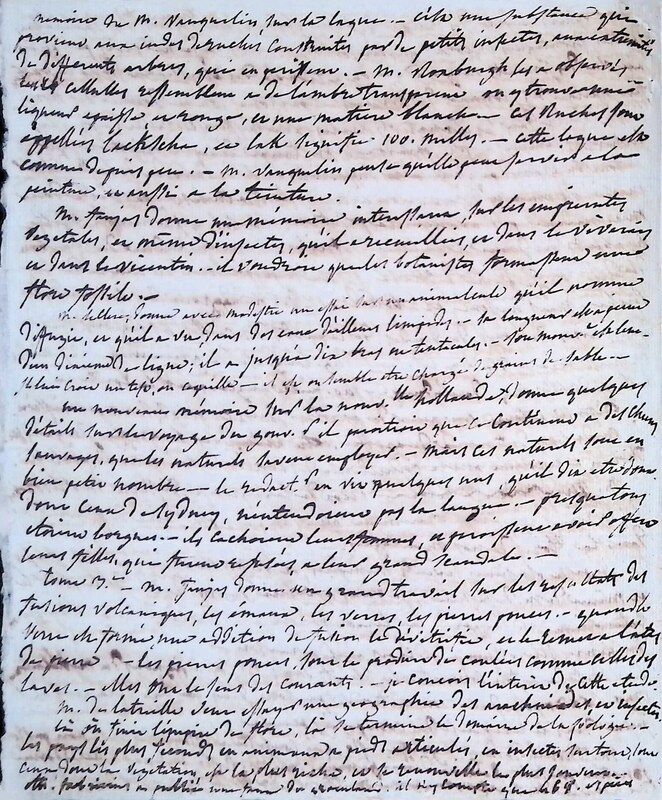 mémoire de M. Vauquelin, sur la laque. — c'est une substance qui
provient aux indes de ruches construites par de petits insectes, aux extremités
de differents arbres, qui en périssent. — M. Roxburgh les a observés
les cellules ressemblent a de l'ambre transparent on y trouve une
liqueur epaisse et rouge, et une matiere blanche — ces Ruches sont
appellées lacksha, et lak signifie 100. milles. — cette laque est
connue depuis peu. — M. Vauquelin pense qu'elle peut servir a la
peinture, et aussi a la teinture.
M. faujas donne un mémoire interessant, sur les empreintes
vegetales, et même d'insectes, qu'il a recueillies, et dans le
et dans le vicentin. — il voudroit que les botanistes formassent une
flore fossile. —
donne avec modestie un essai sur un animalcule qu'il nomme
difflugie, et qu'il a vu dans des eaux d'ailleurs limpides. — sa longueur est a peine
d'un dixieme de ligne; il a jusqu'a dix bras ou tentacules. — son
il croit un test, ou coquille — il est, ou semble etre chargé de grains de sable. —
un nouveau mémoire sur la nouv. hollande, donne quelques
détails sur le voyage du gouv. il paroitroit que ce continent a des
sauvages, que les naturels savent employer. — mais ces naturels sont en
bien petit nombre — le redact. en vit quelques uns, qu'il dit etre
dont ceux de Sydney, n'entendoient pas la langue. — presque tous
etoient borgnes. — ils cacherent leurs femmes, et parurent avoir offert
leurs filles, qui furent refusées, a leur grand scandale. —
tome 7. — M. faujas donne un grand travail sur les resultats des
fusions volcaniques, les émaux, les verres, les pierres ponces. — quand le
verre est formé une addition de fusion le dévitrifie, et le ramene a l'état
de pierre — les pierres ponces, sont le produit de coulées comme celles des
laves. — elles ont le sens des courants. — je conçois l'interet de cette etude.
M. de latreille veut essayer une geographie des arachnides et insectes
là ou finit l'empire de flore, là se termine le domaine de la zoologie. —
les pays les plus féconds en animaux a pieds articulés, en insectes surtout, sont
ceux dont la vegetation est la plus riche, et se renouvelle le plus